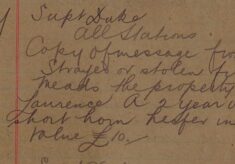 Supt Duke
All Stations
Copy of message fro
Strayed or stolen fr
means the property
Laurence A 2 year o
short horn heifer in
value £10.-